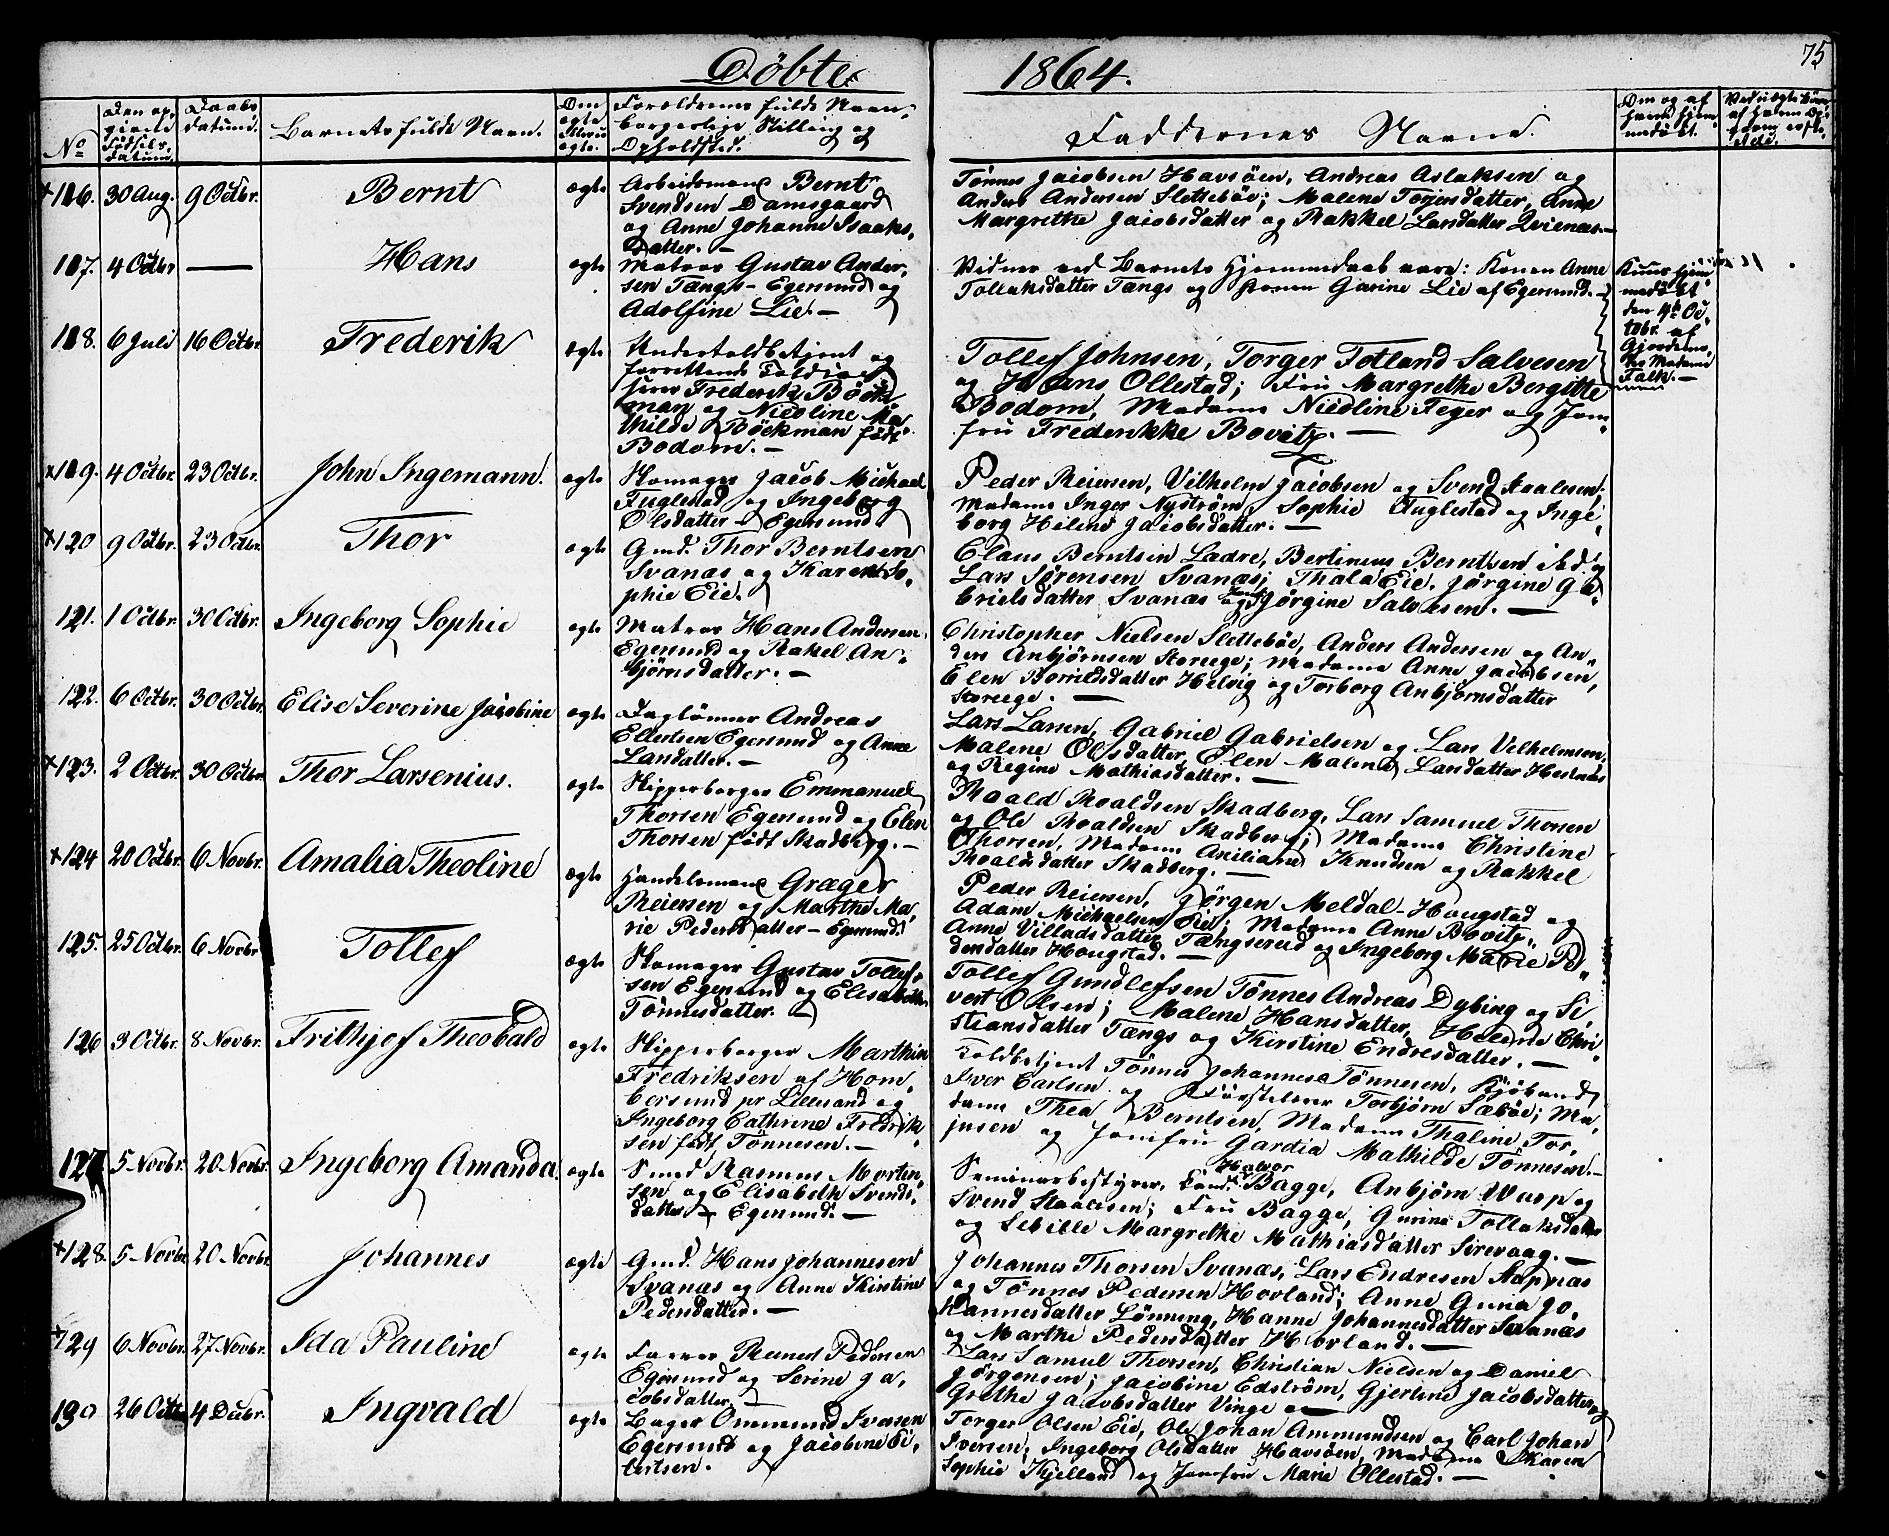 75
Döbte 1864.
No
Den opgivne Födsels-datum.
Daabsdatum.
Barnets fulde Navn.
Om ægte eller uægte.
Forældrenes fulde Navn, borgerlige Stilling og Opholdsted.
Faddernes Navne.
Om og af hvem hjemmedöbt.
116. 30 Aug. 9 Octbr. Bernt ægte
Arbeidsmand Bernt
Svendsen Damsgaard
og Anne Johanne Isaaks-
datter. —
Tönnes Jacobsen Havsöen, Andreas Aslaksen og
Anders Andersen Sletteböe; Malene Torjersdatter, Anne
Margrethe Jacobsdatter og Rakkel Larsdatter Qvienæs. —
117. 4 Octbr — Hans ægte
Matros Gustav Ander-
sen Tængs - Egersund og
Adolfine Lie. —
Vidner ved Barnets Hjemmedaab vare: Konen Anne
Tollaksdatter Tængs og Konen Gurine Lie af Egersund. —
Kuns hjem-
medöbt
den 4de Oc-
tobr. af
Gjordemo-
der Madame
Falk. —
118. 6 Juli 16 Octbr. Frederik ægte
Undertoldbetjent og
forrettende Toldkas-
serer Frederik Böck-
man og Nicoline Ma-
thilde Böckman födt
Bodom. —
Tollef Johnsen, Torger Totland Salvesen
og Hans Ollestad; Fru Margrethe Bergitte
Bodom, Madame Nicoline Feyer og Jom-
fru Frederikke Bovitz. —
119. 4 Octbr. 23 Octbr. John Ingemann. ægte
Skomager Jacob Michael
Fuglestad og Ingeborg
Olsdatter - Egersund
Peder Reiersen, Vilhelm Jacobsen og Svend Staalesen;
Madame Inger Nyström, Sophie Fuglestad og Inge-
borg Helene Jacobsdatter. —
120 9 Octbr. 23 Octbr. Thor ægte
Gmd. Thor Berntsen
Svanæs og Karen So-
phie Eie.
Claus Berntsen Ladre, Bertineus Berntsen ibd. og
Lars Sörensen Svanæs; Thala Eie. Jörgine Ga-
brielsdatter Svanæs og Jörgine Salvesen. —
121. 1 Octbr. 30 Octbr. Ingeborg Sophie ægte
Matros Hans Andersen
Egersund og Rakel An-
björnsdatter. —
Christopher Nielsen Sletteböe, Anders Andersen og An-
ders Anbjörnsen Storeege; Madame Anne Jacobsen,
Elen Borrildsdatter Helvig og Torborg Anbjörnsdatter
Storeege. —
122. 6 Octbr. 30 Octbr. Elise Severine Jacobine ægte
Daglönner Andreas
Ellertsen Egersund og Anne
Larsdatter. —
Lars Larsen, Gabriel Gabrielsen og Lars Vilhelmsen,
Malene Olsdatter, Elen Malene Larsdatter Hestnæs
og Regine Mathiasdatter. —
123. 2 Octbr. 30 Octbr. Thor Larsenius. ægte
Skipperborger Emmanuel
Thorsen Egersund og Elen
Thorsen födt Skadberg. —
Roald Roaldsen Skadberg, Lars Samuel Thorsen
og Ole Roaldsen Skadberg; Madame Christine
Thorsen, Madame Axiliane Knudsen og Rakkel
Roaldsdatter Skadberg. —
124 20 Octbr. 6 Novbr. Amalia Theoline ægte
Handelsmand Græger
Reiersen og Marthe Ma-
rie Pedersdatter - Egersund.
Peder Reiersen, Jörgen Meldal - Hougstad og
Adam Michaelsen Eie; Madame Anne Bovitz,
Anne Villadsdatter Tængsereid og Ingeborg Marie Pe-
dersdatter Hougstad. —
125. 25 Octbr. 6 Novbr Tollef ægte
Skomager Gustav Tollef-
sen Egersund og Elisabeth
Tönnesdatter. —
Tollef Gundlefsen, Tönnes Andreas Dybing og Si-
vert Olsen; Malene Hansdatter, Helene Chri-
stiansdatter Tængs og Kirstine Endresdatter. —
126 3 Octbr. 8 Novbr. Frithjof Theobald ægte
Skipperborger Marthin
Fredriksen af Hom-
borsund pr Lillesand og
Ingeborg Cathrine Fredrik-
sen födt Tönnesen. —
Toldbetjent Tönnes Johannes Tönnesen, Kjöbmand
Iver Carlsen og Förstelærer Torbjörn Sæböe; Ma-
dame Thea Berntsen, Madame Thaline Tor-
jusen og Jomfru Gardia Mathilde Tönnesen. —
127 5 Novbr. 20 Novbr. Ingeborg Amanda. ægte
Smed Rasmus Morten-
sen og Elisabeth Svends-
datter - Egersund. —
Seminarbestyrer, Cand. Halvor Bagge, Anbjörn Waap og
Svend Staalesen; Fru Bagge, Gurine Tollaksdatter
og Sebille Margrethe Mathiasdatter Sirevaag. —
128. 5 Novbr 20 Novbr. Johannes ægte
Gmd. Hans Johannesen
Svanæs og Anne Kirstine
Pedersdatter. —
Johannes Thorsen Svanæs, Lars Endresen Stapnæs
og Tönnes Pedersen Hovland; Anne Guna Jo-
hannesdatter Lönning, Hanne Johannesdatter Svanæs
og Marthe Pedersdatter Hovland. —
129 6 Novbr. 27 Novbr. Ida Pauline ægte
Farver Reinert Pedersen
Egersund og Serine Ja-
cobsdatter. —
Lars Samuel Thorsen, Christian Nielsen og Daniel
Jörgensen; Jacobine Edström, Gjertine Jacobsdatter og
Grethe Jacobsdatter Vinge —
130 26 Octbr 4 Decbr. Ingvald ægte
Bager Ommund Ivarsen
Egersund og Jacobine Si-
vertsen.
Torger Olsen Eie, Ole Johan Ammundsen og Carl Johan
Iversen; Ingeborg Olsdatter Havsöen, Madame Karen
Sophie Kjelland og Jomfru Marie Ollestad. —